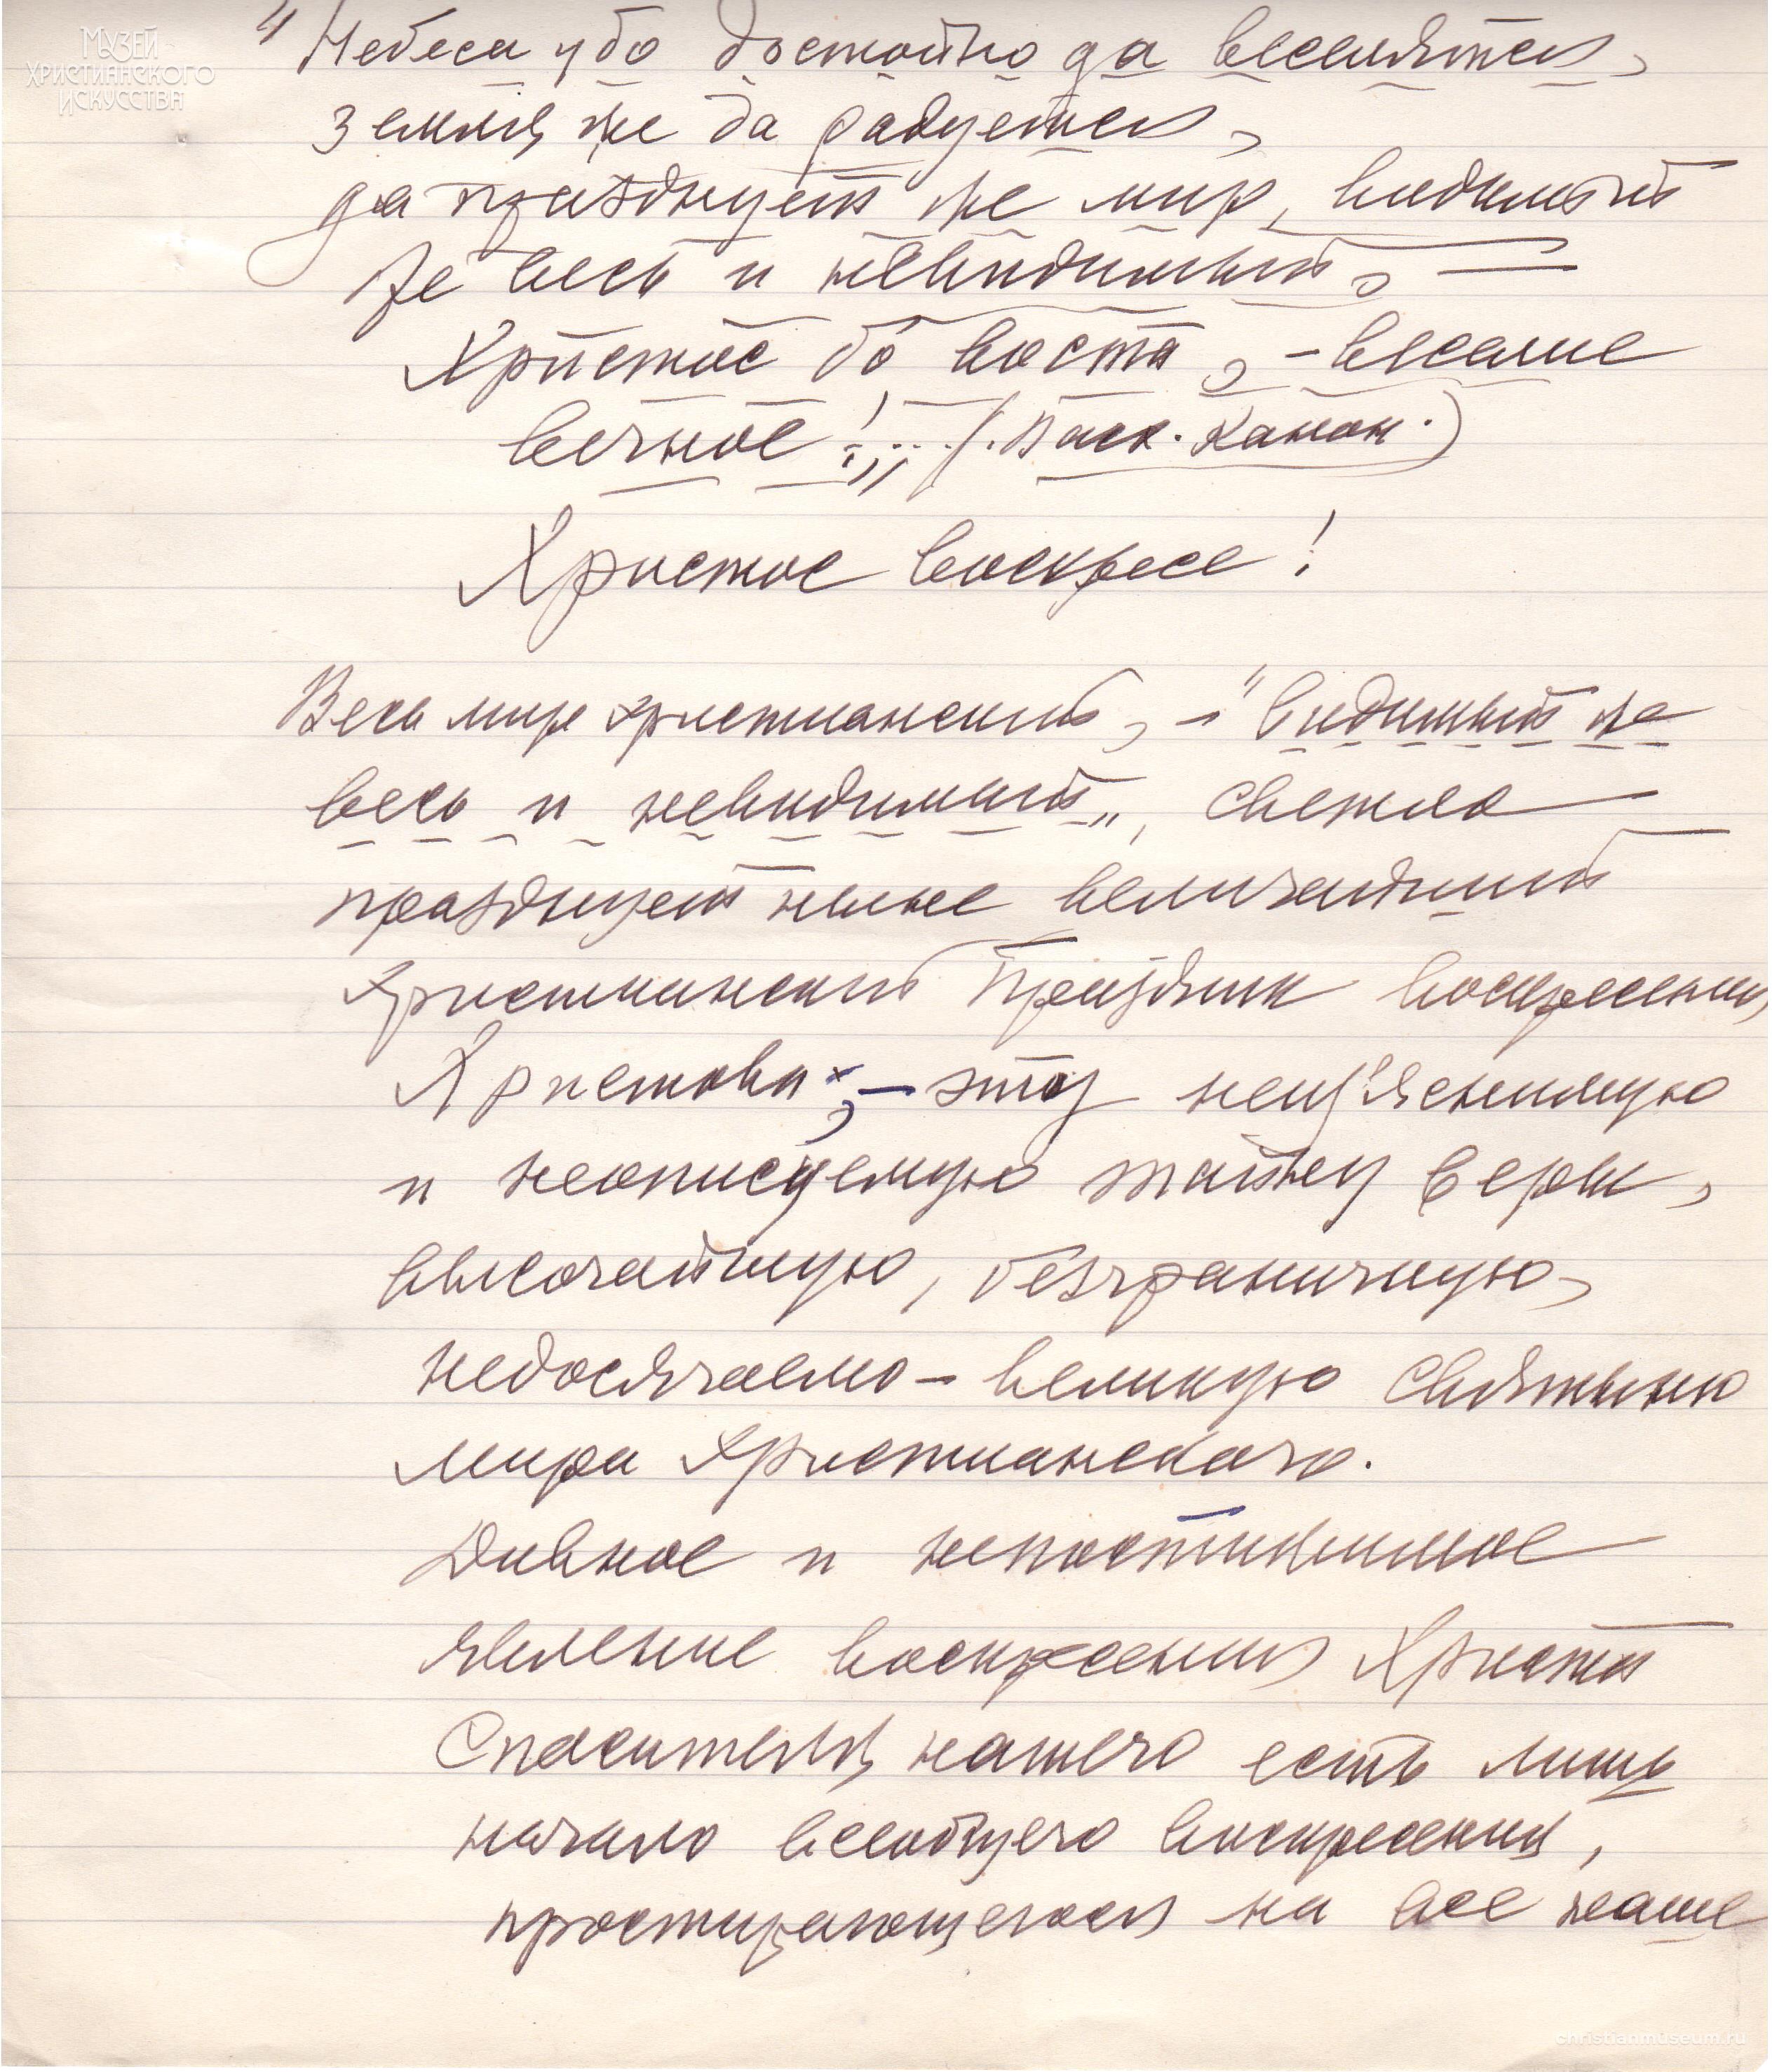 МУЗЕЙ
ХРИСТИАНСКОГО
ИСКУССТВА
"Небеса убо достойно да веселятся,
земля же да радуется,
да празднует же мир, видимый
же весь и невидимый, —
Христос бо воста, – веселие
вечное!..." (Пасх. Канон.)
Христос воскресе!
Весь мир христианский, – "видимый же
весь и невидимый", светло
празднует ныне величайший
христианский Праздник воскресения
Христова; – эту неизъяснимую
и неописуемую тайну веры,
высочайшую, безграничную,
недосягаемо – великую святыню
мира христианского.
Дивное и непостижимое
явление воскресения Христа
Спасителя нашего есть лишь
начало всеобщего воскресения,
простирающегося на все наше
christianmuseum.ru